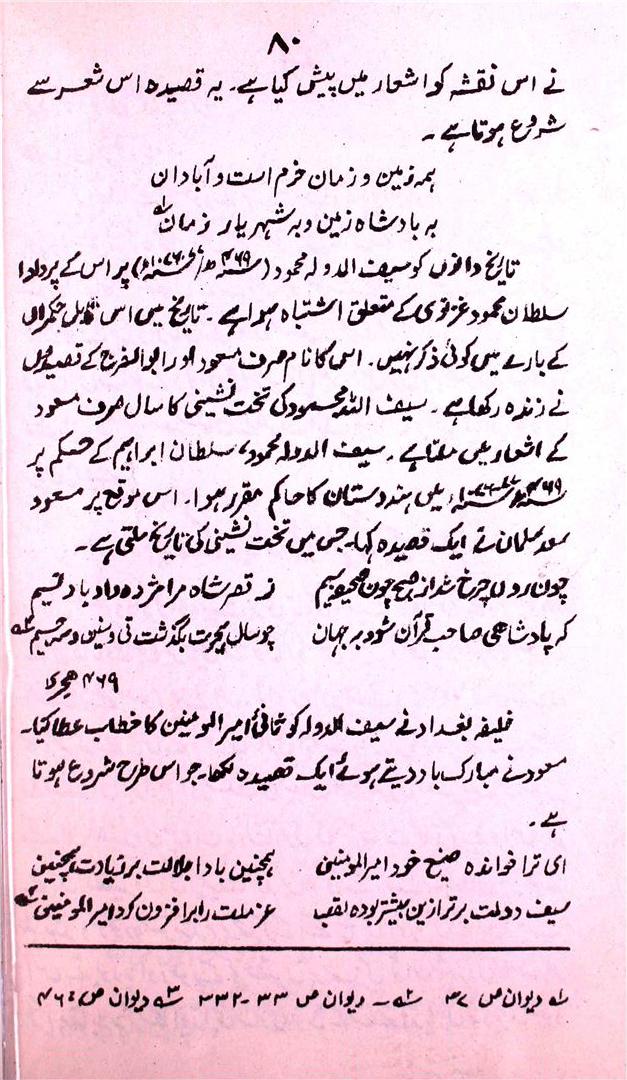 ۸۰
نے اس نقشہ کو اشعار میں پیش کیا ہے۔ یہ قصیدہ اس شعر سے
شروع ہوتا ہے۔
ہمہ زمین و زمان خرم است و آبادان
بہ بادشاہ زمین و بہ شہریار زمان ؎۱
تاریخ دانوں کو سیف الدولہ محمود (۴۶۹ھ/۷۷-۱۰۷۶ء) پر اس کے پردادا
سلطان محمود غزنوی کے متعلق اشتباہ ہوا ہے۔ تاریخ میں اس قابل حکمران
کے بارے میں کوئی ذکر نہیں۔ اس کا نام صرف مسعود اور ابوالفرج کے قصیدوں
نے زندہ رکھا ہے۔ سیف الدولہ محمود کی تخت نشینی کا سال صرف مسعود
کے اشعار میں ملتا ہے۔ سیف الدولہ محمود، سلطان ابراہیم کے حکم پر
۴۶۹ھ/۷۷-۱۰۷۶ء میں ہندوستان کا حاکم مقرر ہوا۔ اس موقع پر مسعود
سعد سلمان نے ایک قصیدہ کہا۔ جس میں تخت نشینی کی تاریخ ملتی ہے۔
چون روی چرخ شد از صبح چون صحیفہ سیم ز قصر شاہ مرا مژدہ داد باد نسیم
کہ پادشاھی صاحب قرآن شود بہ جہان چو سال ہجرت بگذشت تی و سین و سہ جیم ؎۲
۴۶۹ ھجری
خلیفہ بغداد نے سیف الدولہ کو ثانیٔ امیر المومنین کا خطاب عطا کیا۔
مسعود نے مبارک باد دیتے ہوئے ایک قصیدہ لکھا۔ جو اس طرح شروع ہوتا
ہے۔
ای ترا خواندہ صنیع خود امیر المومنین ہمچنین باد اجلالت بر زیادت ہمچنین
سیف دولت برتر ازین بیشتر بودہ لقب عز ملت را برافزون کرد امیر المومنین ؎۳
؎۱ دیوان ص ۴۷ ؎۲۔ دیوان ص ۳۳-۳۳۲ ؎۳ دیوان ص ۴۶۰